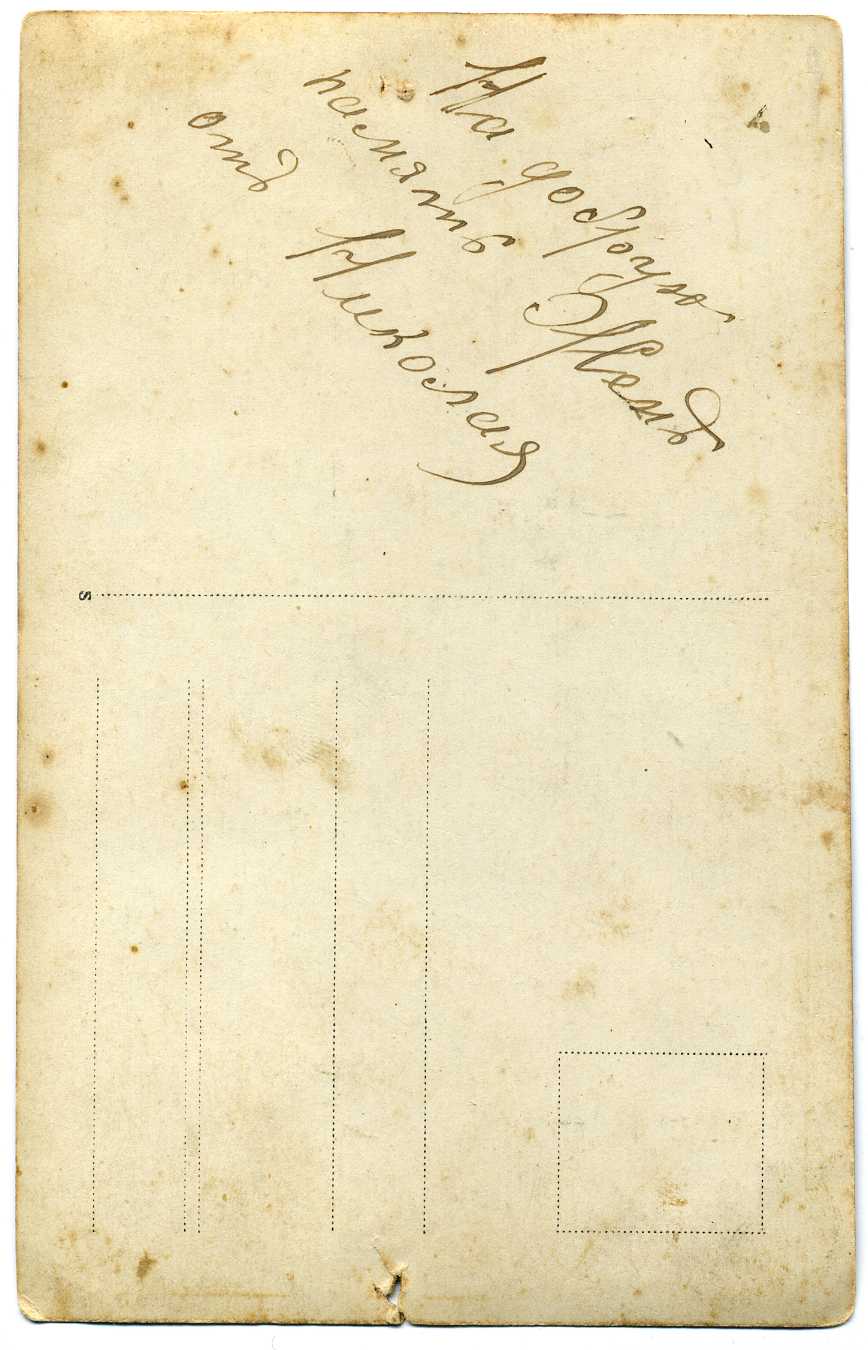 На добрую
память Женѣ
отъ Николая
S